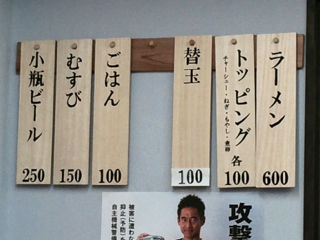 ラーメン
600
トッピング
チャーシュー・ねぎ・もやし・
各
100
替玉
100
ごはん
100
むすび
150
小瓶ビール
250
攻撃
被害に遭わな
抑止(予防)を
自主機械警備